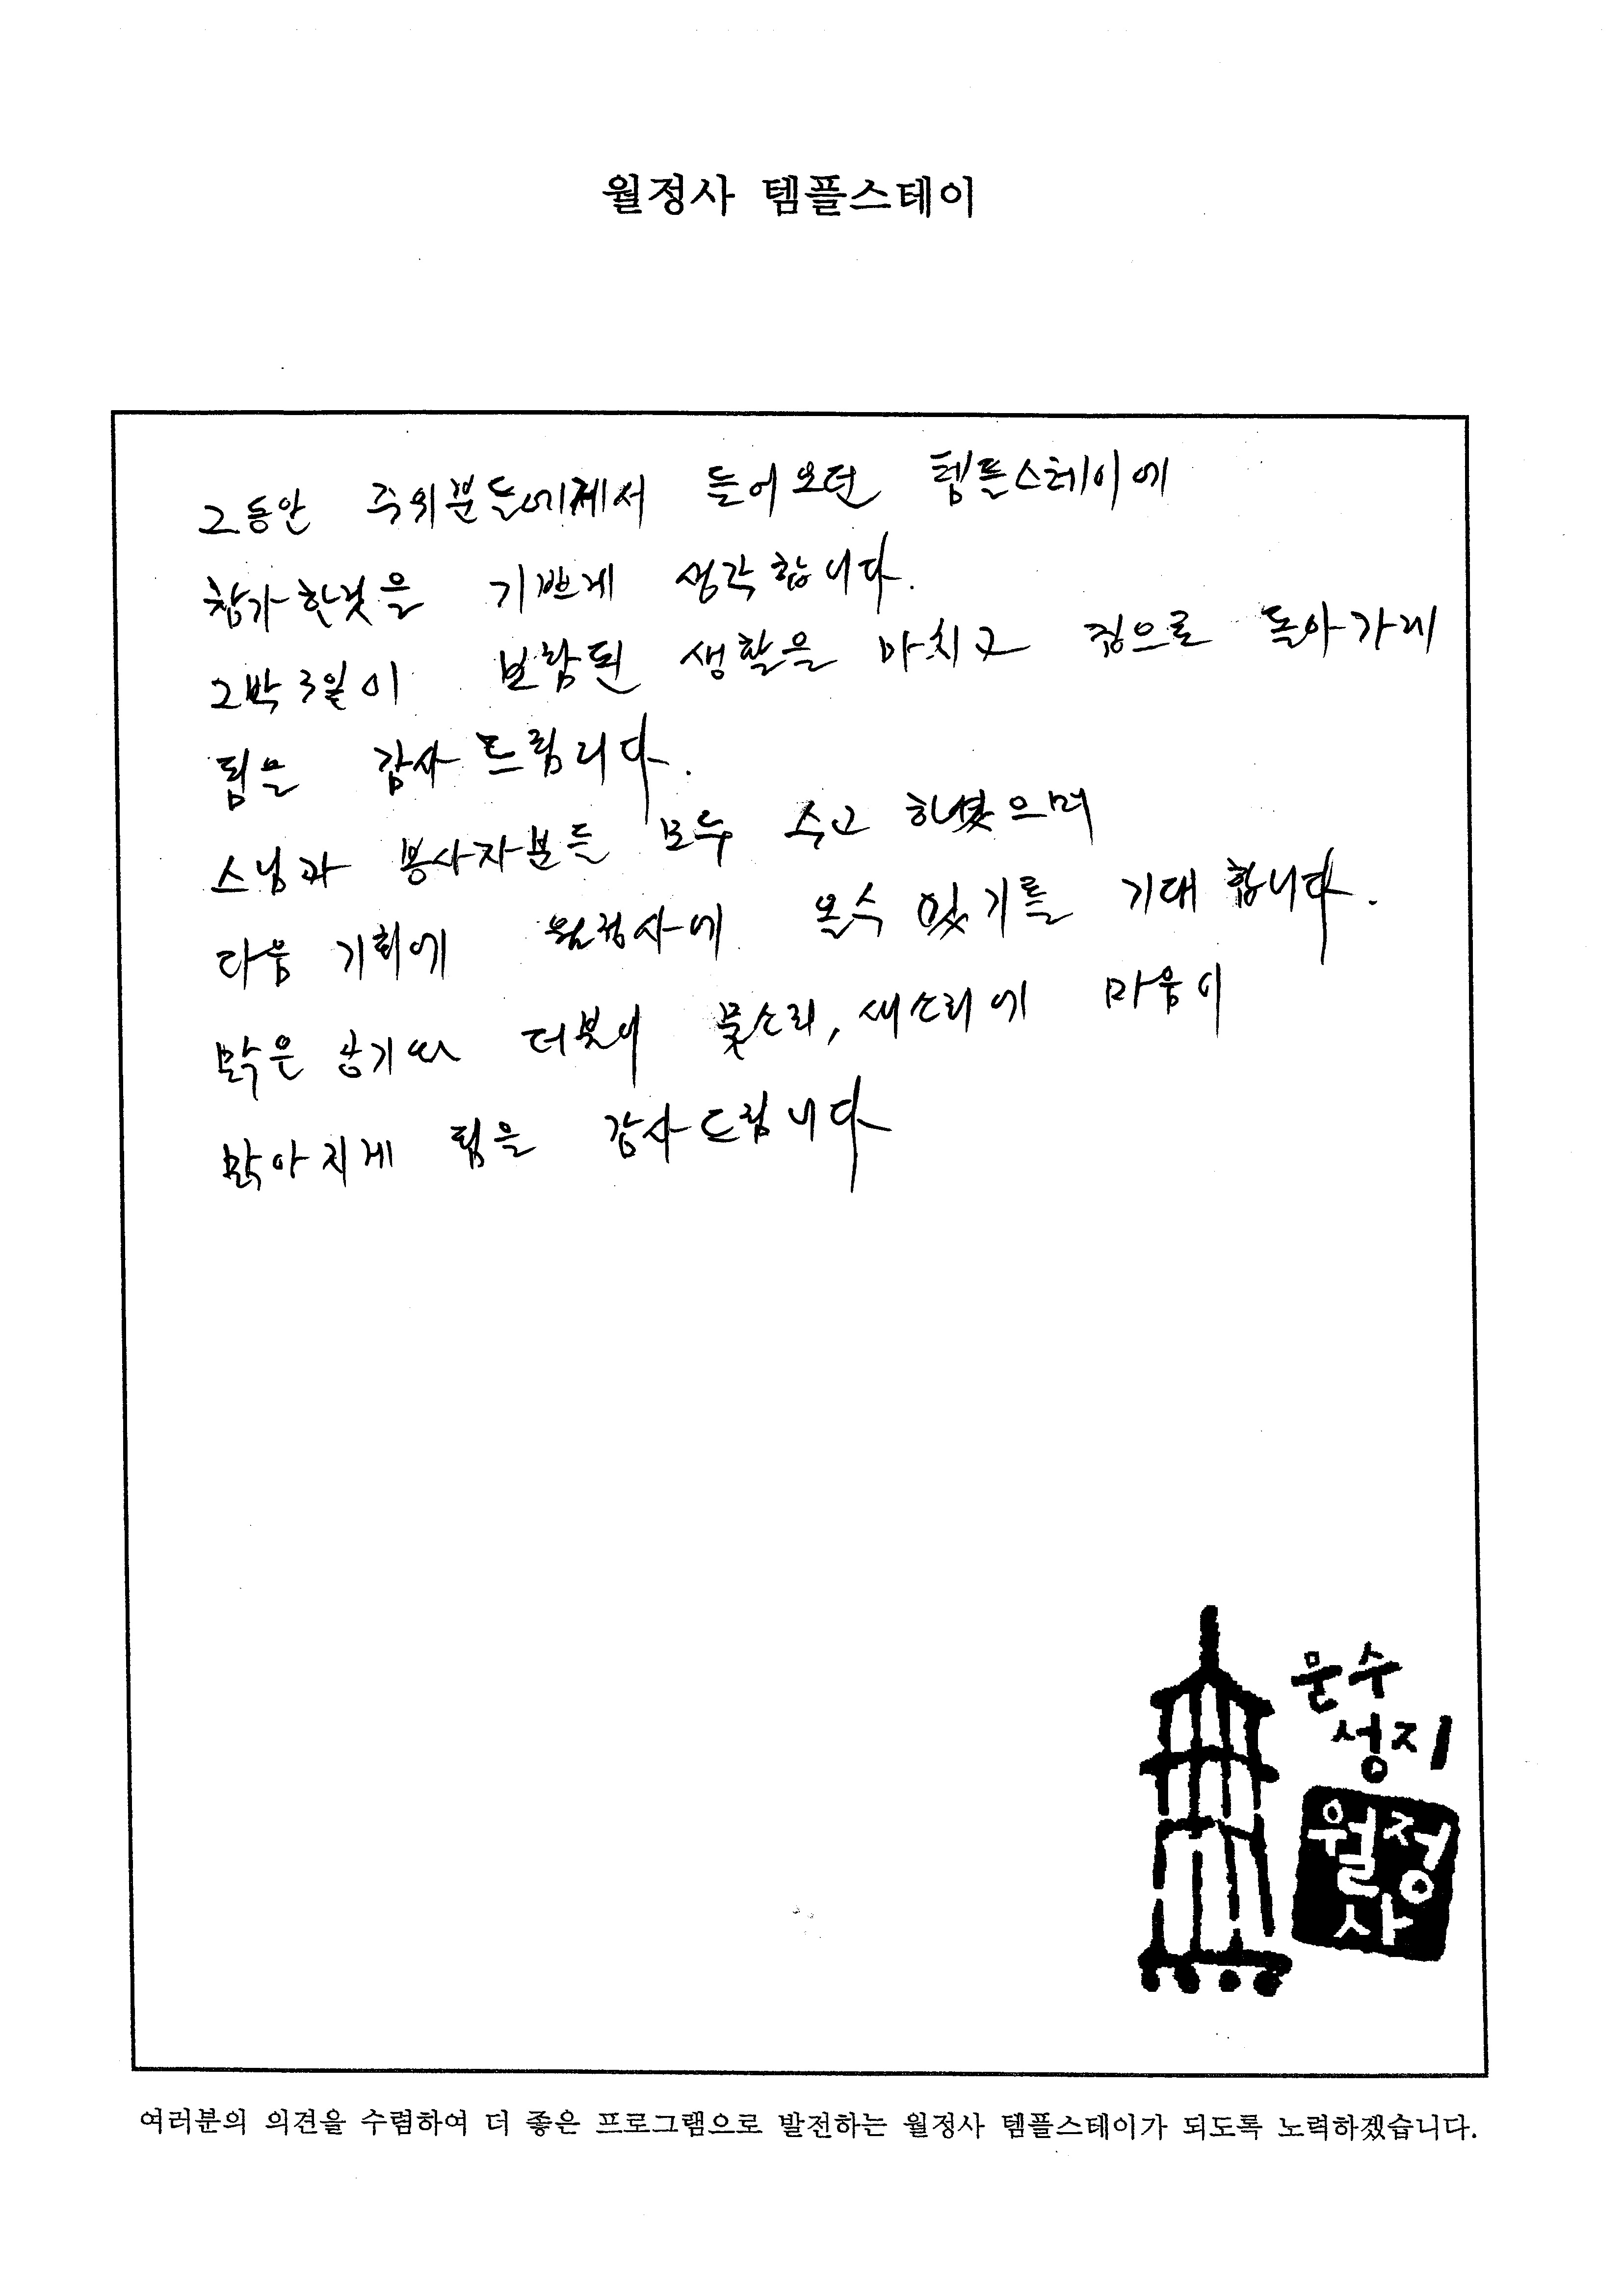 월정사 템플스테이
그동안 주위분들에게서 들어오던 템플스테이에
참가한것을 기쁘게 생각합니다.
2박3일이 보람된 생활을 마치고 집으로 돌아가게
됨을 감사드립니다.
스님과 봉사자분들 모두 수고 하셨으며
다음 기회에 월정사에 올수 있기를 기대합니다.
맑은 공기와 더불어 물소리, 새소리에 마음이
맑아지게 됨을 감사드립니다
문수
성지
월정
사
여러분의 의견을 수렴하여 더 좋은 프로그램으로 발전하는 월정사 템플스테이가 되도록 노력하겠습니다.